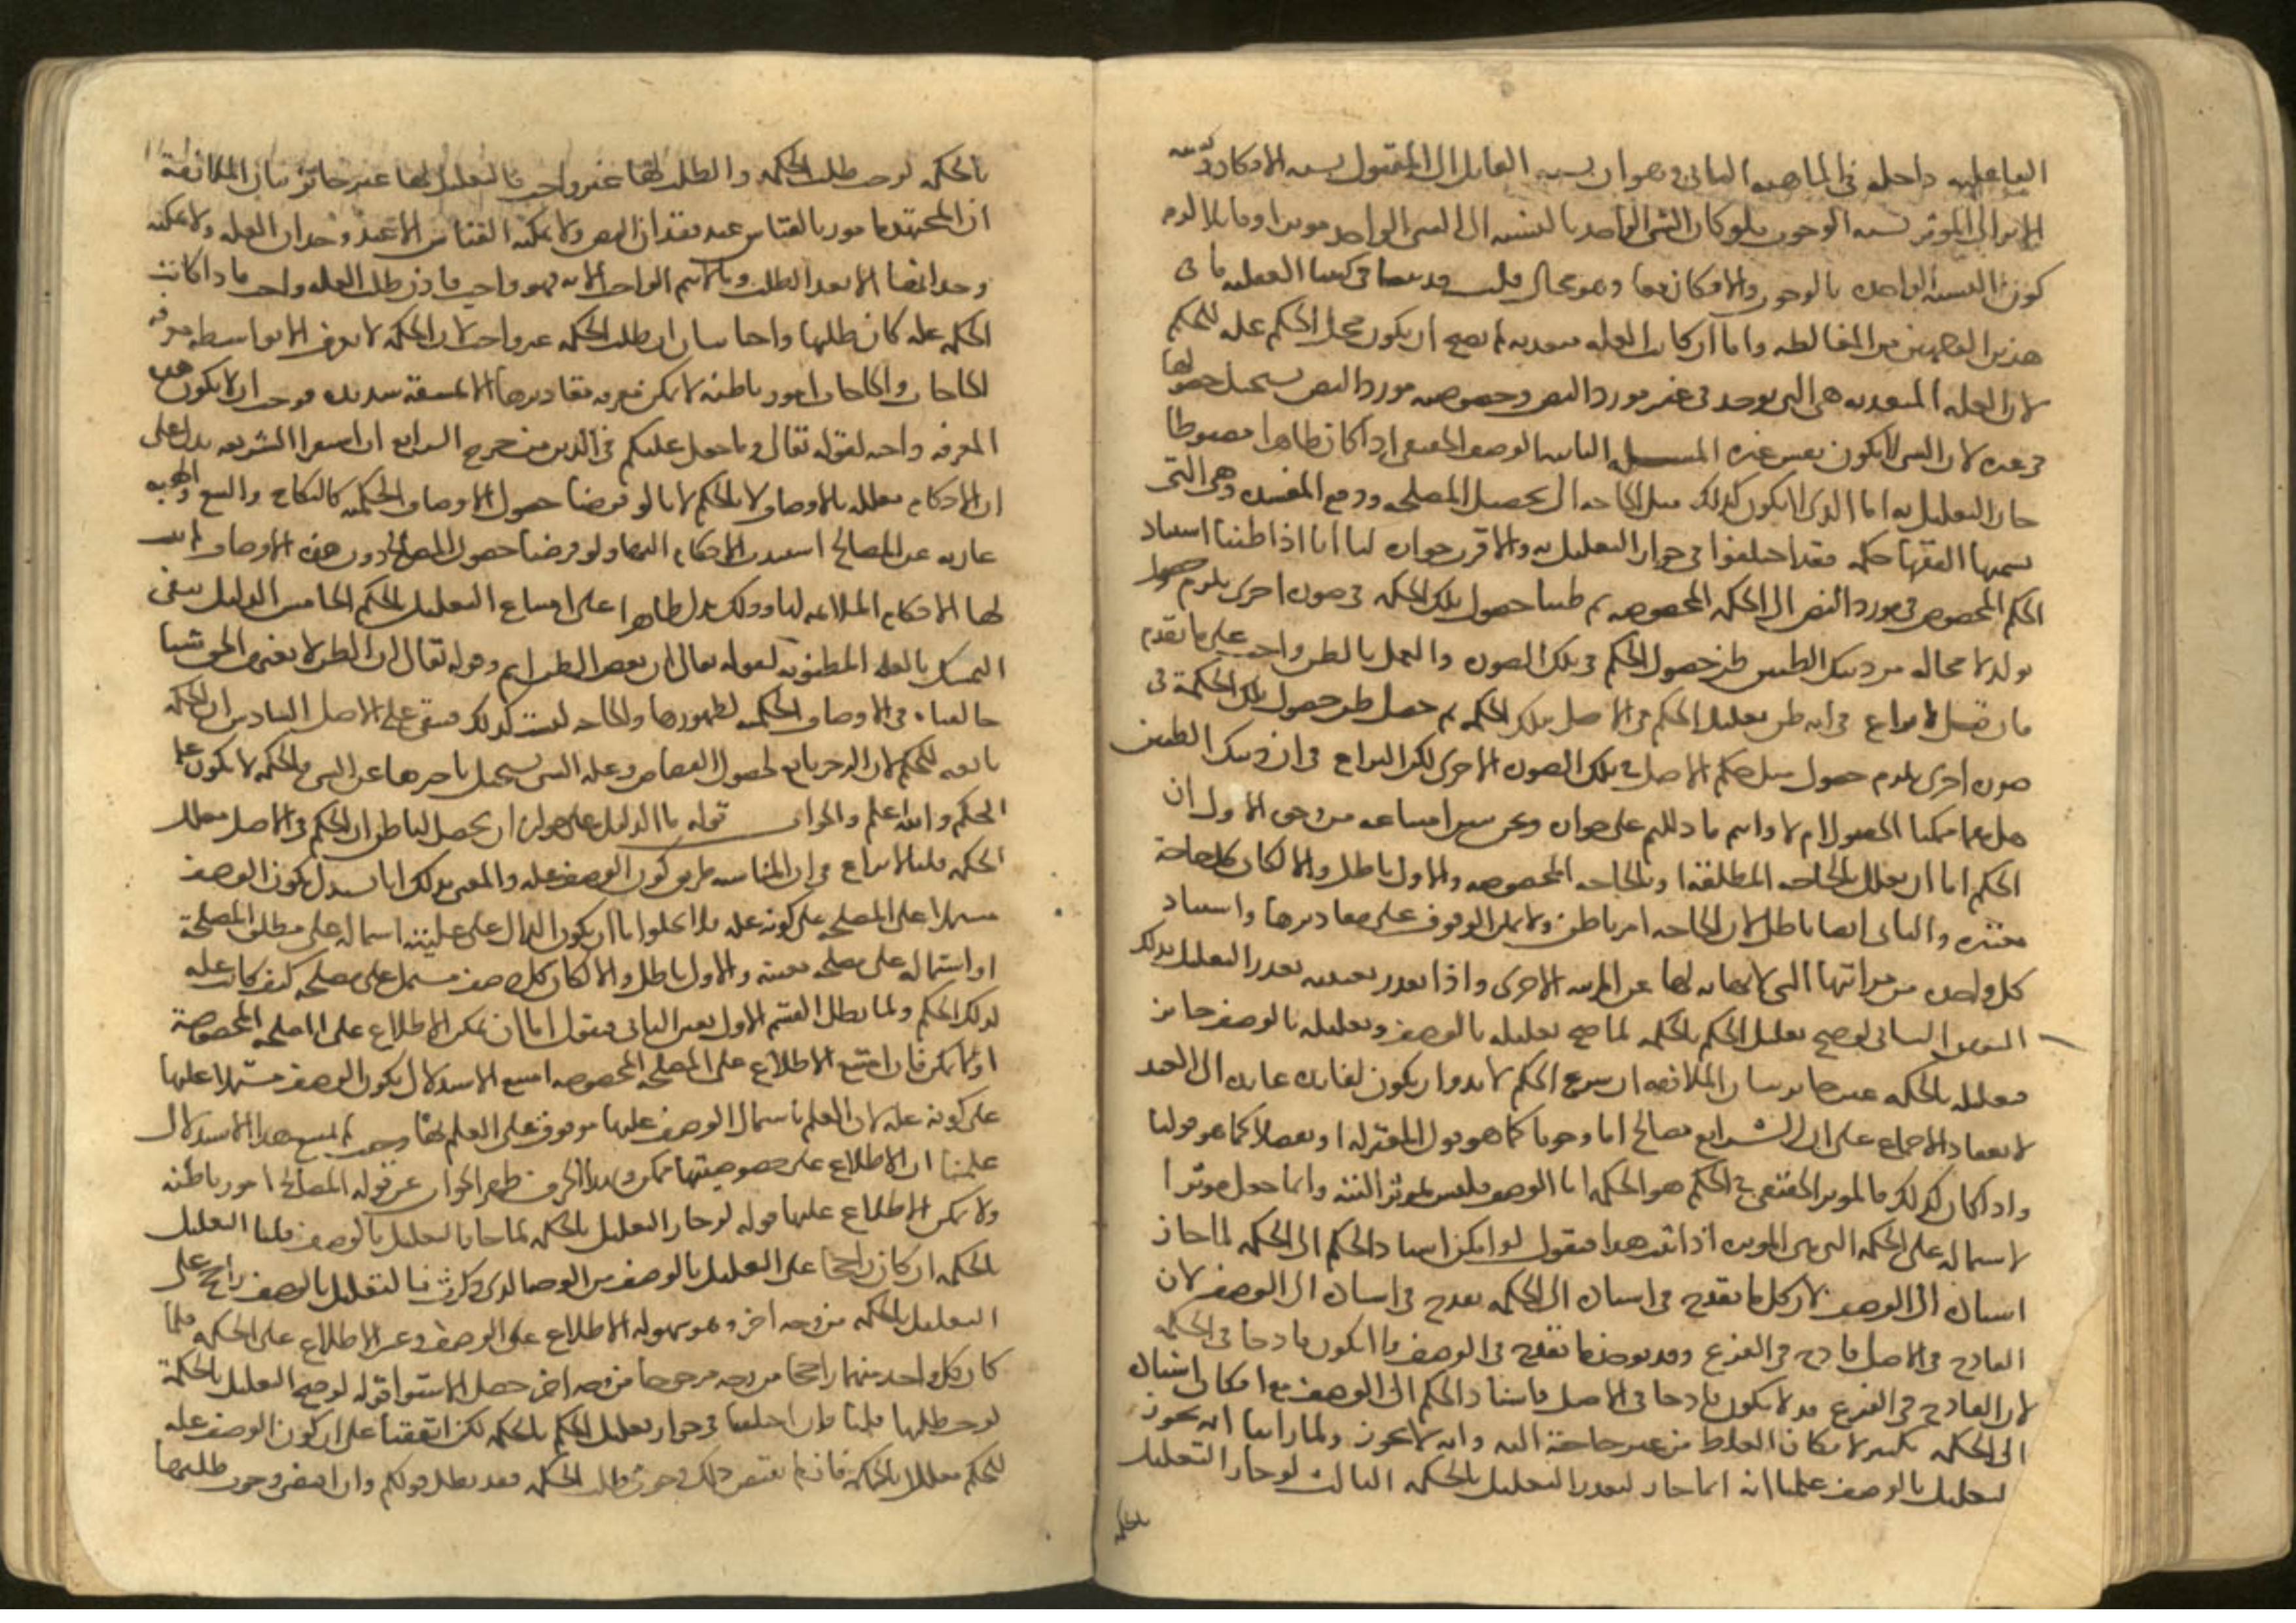 الفاعليه داخله في الماهيه الثاني وهو ان نسبه القابل الى المقبول نسبه الامكان ونسبه
الاثر الى الموثر نسبه الوجوب فلو كان الشي الواحد بالنسبه الى الشي الواحد موثرا وقابلا لزم
كون النسبه الواحده بالوجوب والامكان معا وهو محال قلت قد بينا في كتبنا العقليه ما في
هذين الوجهين من المغالطه واما ان كانت العله متعديه لم يصح ان يكون محل الحكم عله للحكم
لان العله المتعديه هي التي توجد في غير مورد النص وخصوصيه مورد النص يستحيل حصولها
في غيره لان الشي لا يكون نفس غيره المسله الثانيه الوصف الحقيقي اذا كان ظاهرا مضبوطا
جاز التعليل به اما الذي لا يكون كذلك مثل الحاجه الى تحصيل المصلحه ودفع المفسده وهي التي
يسميها الفقها حكمه فقد اختلفوا في جواز التعليل به والاقرب جوازه لنا انا اذا ظننا استناد
الحكم المخصوص في مورد النص الى الحكمه المخصوصه ثم ظننا حصول تلك الحكمه في صوره اخرى يلزم حصول
تولد لا محاله من ذينك الظنين ظن حصول الحكم في تلك الصوره والعمل بالظن واجب على ما تقدم
فان قيل لا نزاع في انه ظن تعليل الحكم في الاصل بتلك الحكمه ثم حصل ظن حصول تلك الحكمة في
صوره اخرى يلزم حصول مثل حكم الاصل في تلك الصوره الاخرى لكن النزاع في ان ذينك الظنين
هل هما ممكنا الحصول ام لا وانتم ما دللتم على جوازه ونحن نبين امتناعه من وجوه الاول ان
الحكم اما ان يعلل بالحاجه المطلقه او بالحاجه المخصوصه والاول باطل والا لكان كل حاجة
معتبره والثاني ايضا باطل لان الحاجه امر باطن ولا يمكن الوقوف على مقاديرها وامتياز
كل واحده من مراتبها التي لا نهايه لها عن المرتبه الاخرى واذا تعذر تعيينه تعذر التعليل بذلك
التعيين الثاني لو صح تعليل الحكم بالحكمه لما صح تعليله بالوصف وتعليله بالوصف جائز
فتعليله بالحكمه غير جائز بيان الملازمه ان شرع الحكم لا بد وان يكون لفائده عائده الى العبد
لانعقاد الاجماع على ان الشرايع مصالح اما وجوبا كما هو قول المعتزله او تفضلا كما هو قولنا
واذا كان كذلك فالموثر الحقيقي في الحكم هو الحكمه اما الوصف فليس بموثر البته وانما جعل موثرا
لاشتماله على الحكمه التي هي الموثره اذا ثبت هذا فنقول لو امكن استناد الحكم الى الحكمه لما جاز
اسناده الى الوصف لان كل ما يقدح في اسناده الى الحكمه يقدح في اسناده الى الوصف لان
القادح في الاصل قادح في الفرع وقد يوجد ما يقدح في الوصف ولا يكون قادحا في الحكمه
لان القادح في الفرع قد لا يكون قادحا في الاصل فاسناد الحكم الى الوصف مع امكان اسناده
الى الحكمه تكثير لامكان الغلط من غير حاجة اليه وانه لا يجوز ولما راينا انه يجوز
تعليله بالوصف علمنا انه انما جاز لتعذر التعليل بالحكمه الثالث لو جاز التعليل
بالحكمه
بالحكمه لوجب طلب الحكمه والطلب لها غير واجب فالتعليل بها غير جائز بيان الملازمة
ان المجتهد مامور بالقياس عند فقدان النص ولا يمكنه القياس الا عند وجدان العله ولا يمكنه
وجدانها الا بعد الطلب وما لا يتم الواجب الا به فهو واجب فاذن طلب العله واجب فاذا كانت
الحكمه عله كان طلبها واجبا بيان ان طلب الحكمه غير واجب لان الحكمه لا تعرف الا بواسطه معرفه
الحاجات والحاجات امور باطنه لا يمكن معرفه مقاديرها الا بمشقة شديده فوجب ان لا يكون هذه
المعرفه واجبه لقوله تعالى وما جعل عليكم في الدين من حرج الرابع ان استقرا الشريعه يدل على
ان الاحكام معلله بالاوصاف لا بالحكم لانا لو فرضنا حصول الاوصاف الجليه كالنكاح والبيع والهبه
عاريه عن المصالح استندت الاحكام اليها ولو فرضنا حصول المصالح دون هذه الاوصاف لم يثبت
لها الاحكام الملائمه لها وذلك يدل ظاهرا على امتناع التعليل بالحكم الخامس الدليل ينفي
التمسك بالعله المظنونه لقوله تعالى ان بعض الظن اثم وقوله تعالى ان الظن لا يغني من الحق شيا
خالفناه في الاوصاف الجليه لظهورها والحاجه ليست كذلك فيبقى على الاصل السادس ان الحكمه
تابعه للحكم لان الزجر تابع لحصول القصاص وعله الشي يستحيل تاخرها عن الشي فالحكمه لا تكون عله
الحكم والله اعلم والجواب قوله ما الدليل على جواز ان يحصل لنا ظن ان الحكم في الاصل معلل
الحكمه قلنا لا نزاع في ان المناسبه طريق كون الوصف عله والمعنى بذلك انا نستدل بكون الوصف
مشتملا على المصلحه على كونه عله فلا يخلوا اما ان يكون الدال على عليته اشتماله على مطلق المصلحة
او اشتماله على مصلحه معينه والاول باطل والا لكان كل وصف مشتمل على مصلحه كيف كانت عله
لذلك الحكم ولما بطل القسم الاول تعين الثاني فنقول اما ان يمكن الاطلاع على المصلحه المخصوصة
او لا يمكن فان امتنع الاطلاع على المصلحه المخصوصه امتنع الاستدلال بكون الوصف مشتملا عليها
على كونه عله لان العلم باشتمال الوصف عليها موقوف على العلم بها وحيث لم يمتنع هذا الاستدلال
علمنا ان الاطلاع على خصوصيتها ممكن وبهذا الحرف ظهر الجواب عن قوله المصالح امور باطنه
ولا يمكن الاطلاع عليها قوله لو جاز التعليل بالحكمه لما جاز التعليل بالوصف قلنا التعليل
بالحكمه ان كان راجحا على التعليل بالوصف من الوجه الذي ذكرت فالتعليل بالوصف راجح على
التعليل بالحكمه من وجه اخر وهو سهوله الاطلاع على الوصف وعسر الاطلاع على الحكمه فلما
كان كل واحد منهما راجحا من وجه مرجوحا من وجه اخر حصل الاستوا قوله لو صح التعليل بالحكمة
لوجب طلبها قلنا وان اختلفنا في جواز تعليل الحكم بالحكمه لكن اتفقنا على ان كون الوصف عله
للحكم معلل بالحكمه فان لم يقتض ذلك وجوب طلب الحكمه فقد بطل قولكم وان اقتضى وجوب طلبها